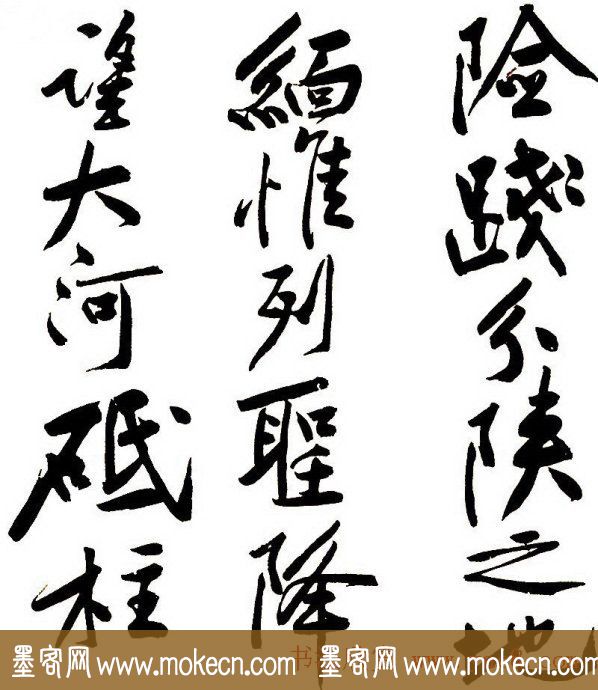 險踐分陝之地
緬惟列聖降
望大河砥柱
墨客网 www.mokecn.com 墨客网 www.mokecn.com